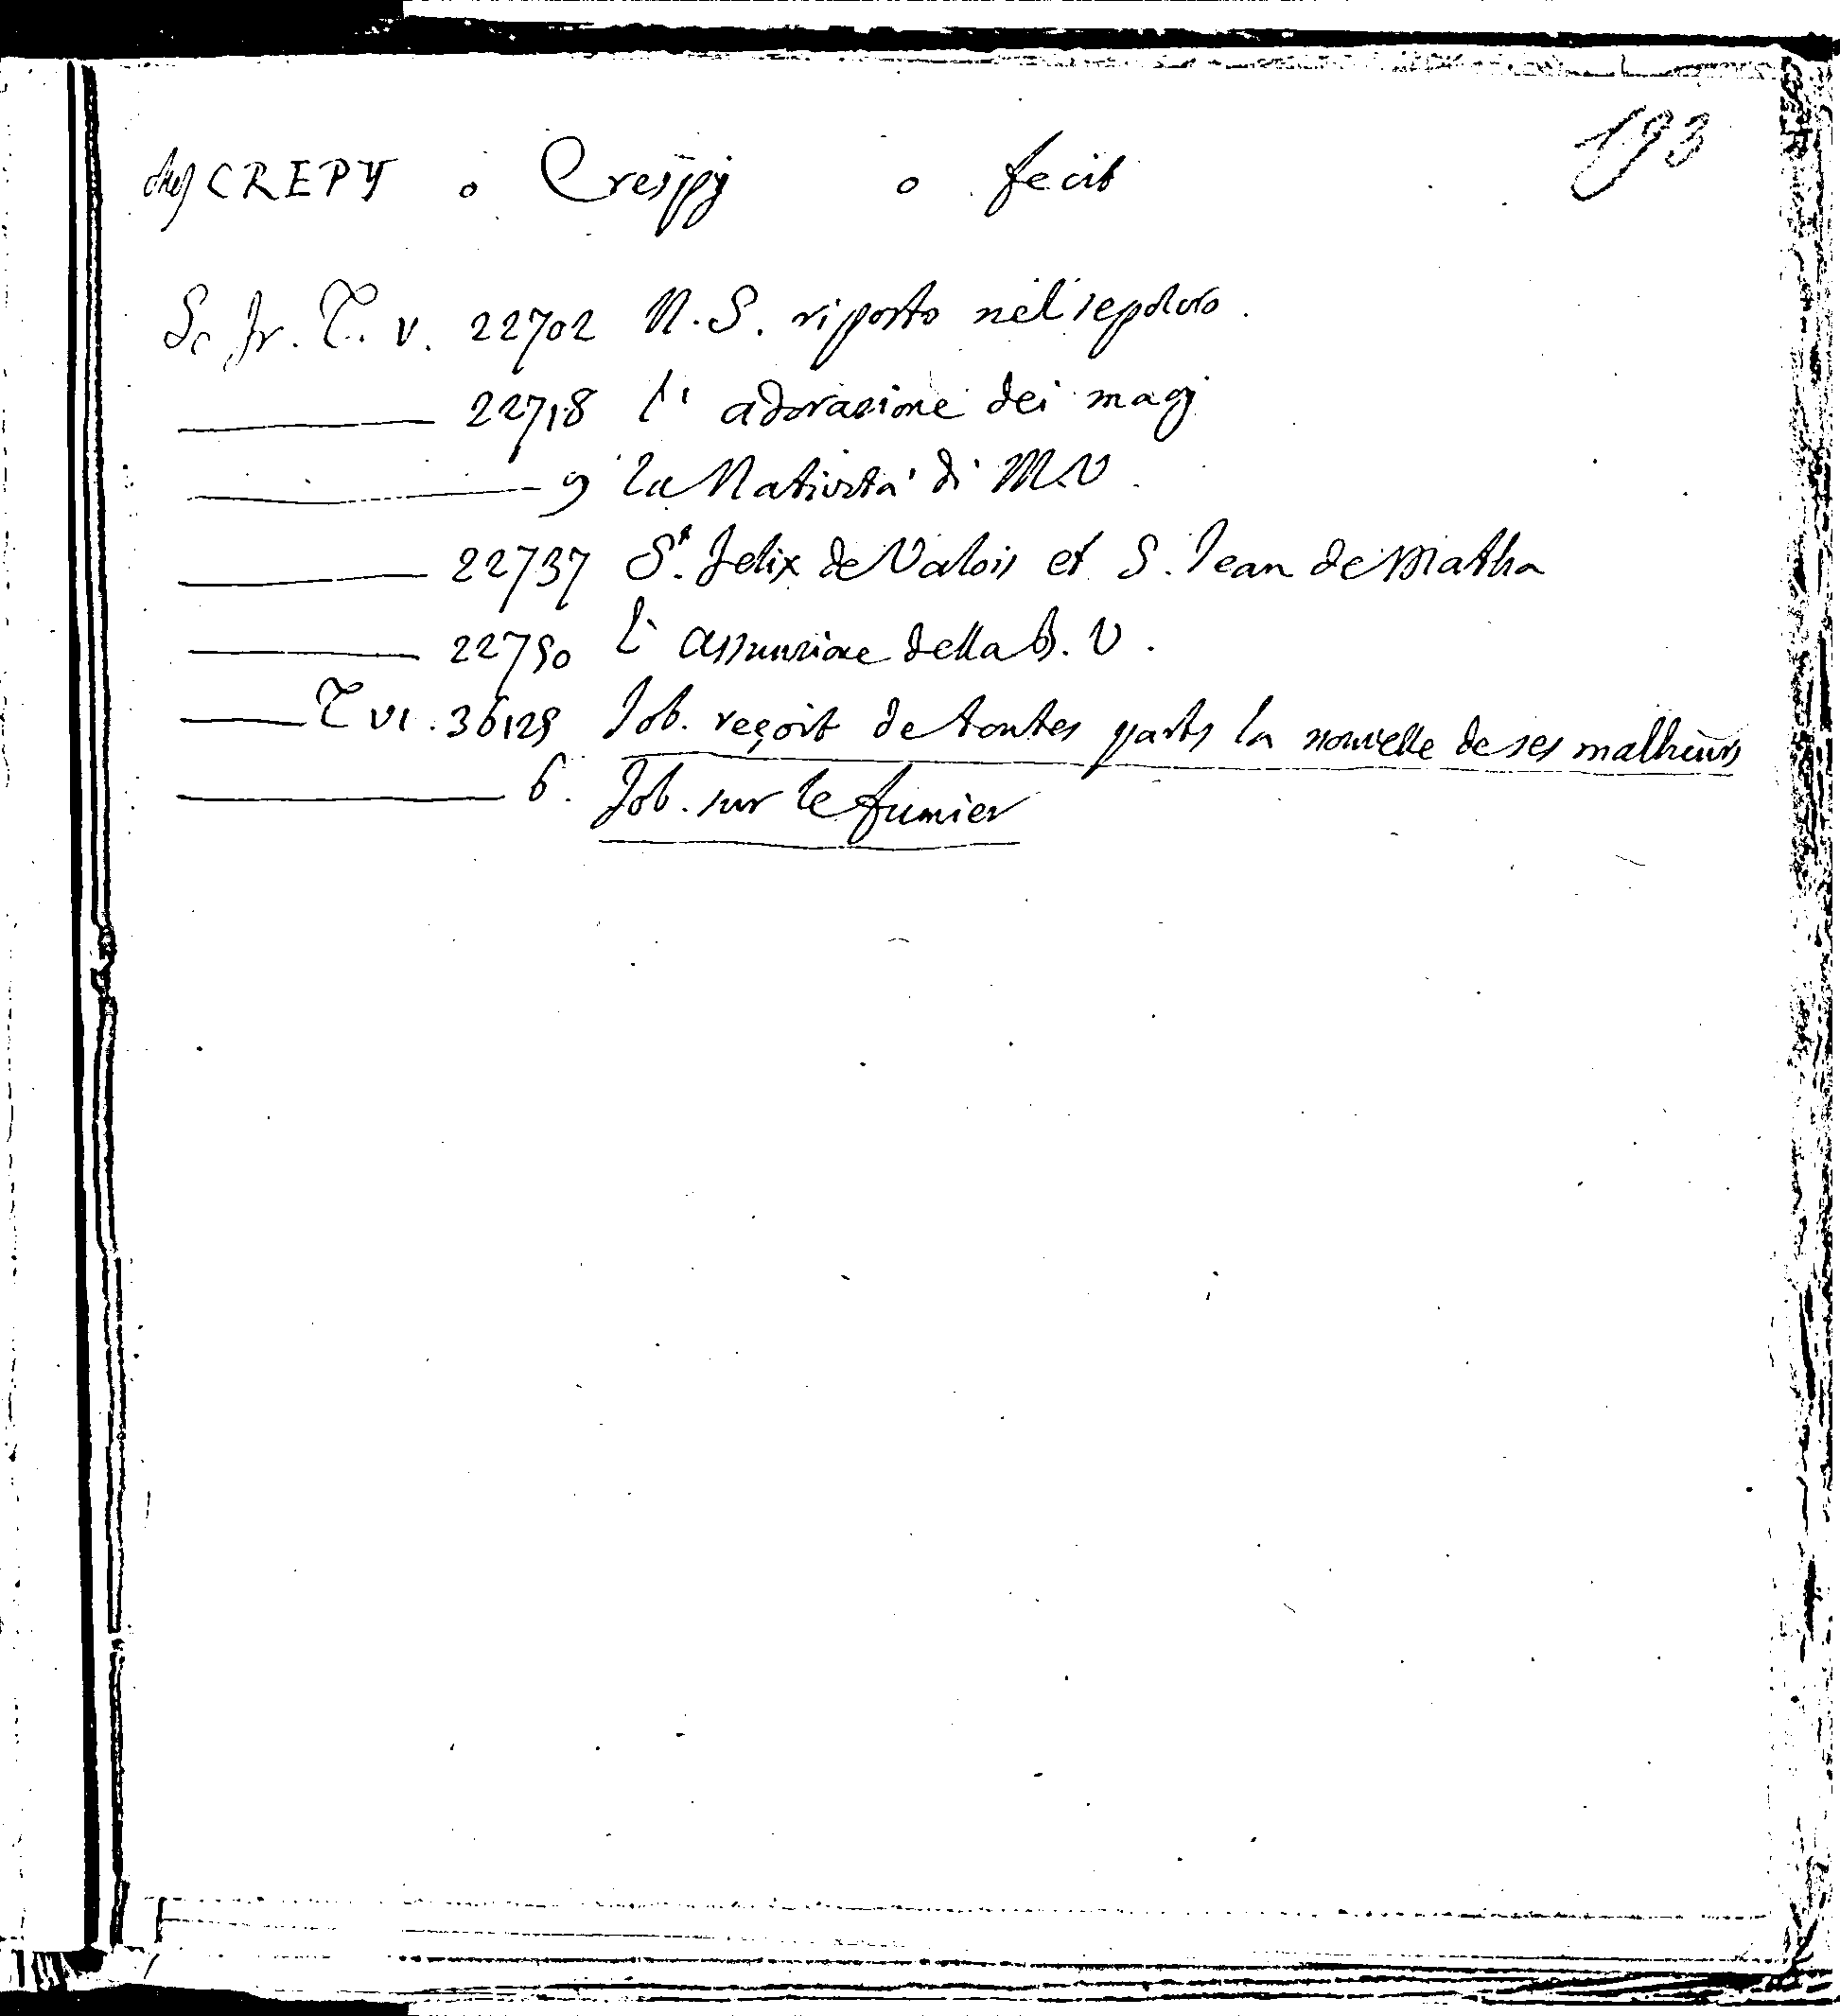 193
chez CREPY o Crespy o fecit
Sc. fr. T. V. 22702 N. S. riposto nel sepolcro.
22718 l'adorazione dei magi
9 la Natività di M.V.
22737 S.t Felix de Valois et S. Jean de Matha
22750 l'assunzione della B. V.
T VI. 36125 Job. reçoit de toutes parts la nouvelle de ses malheurs
6. Job. sur le fumier